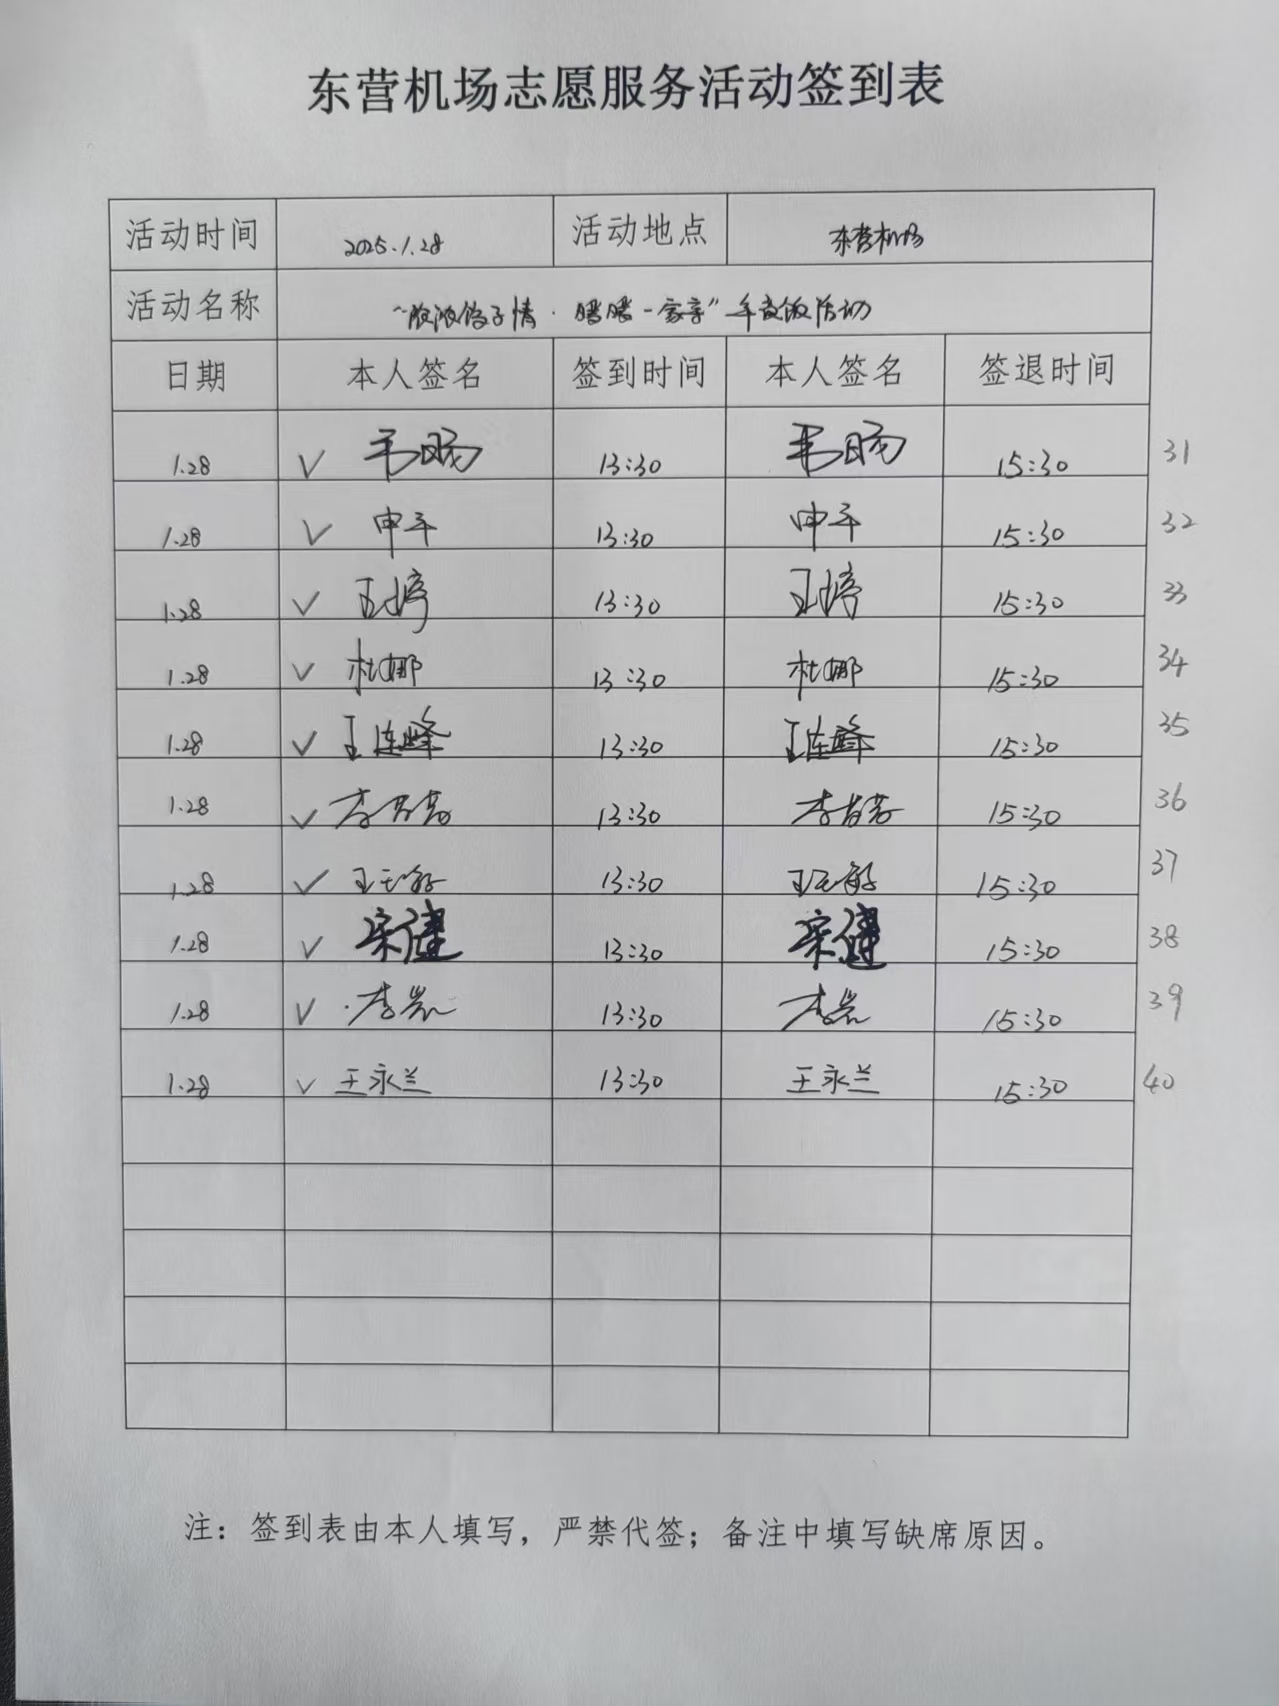 东营机场志愿服务活动签到表
活动时间 2025.1.28 活动地点 东营机场
活动名称 "浓浓饺子情·暖暖一家亲"年夜饭活动
日期 本人签名 签到时间 本人签名 签退时间
1.28 √ 13:30 15:30 31
1.28 √ 申平 13:30 申平 15:30 32
1.28 √ 王婷 13:30 王婷 15:30 33
1.28 √ 杜娜 13:30 杜娜 15:30 34
1.28 √ 王连峰 13:30 王连峰 15:30 35
1.28 √ 李 13:30 李 15:30 36
1.28 √ 王 13:30 王 15:30 37
1.28 √ 宋健 13:30 宋健 15:30 38
1.28 √ 李岩 13:30 李岩 15:30 39
1.28 √ 王永兰 13:30 王永兰 15:30 40
注：签到表由本人填写，严禁代签；备注中填写缺席原因。